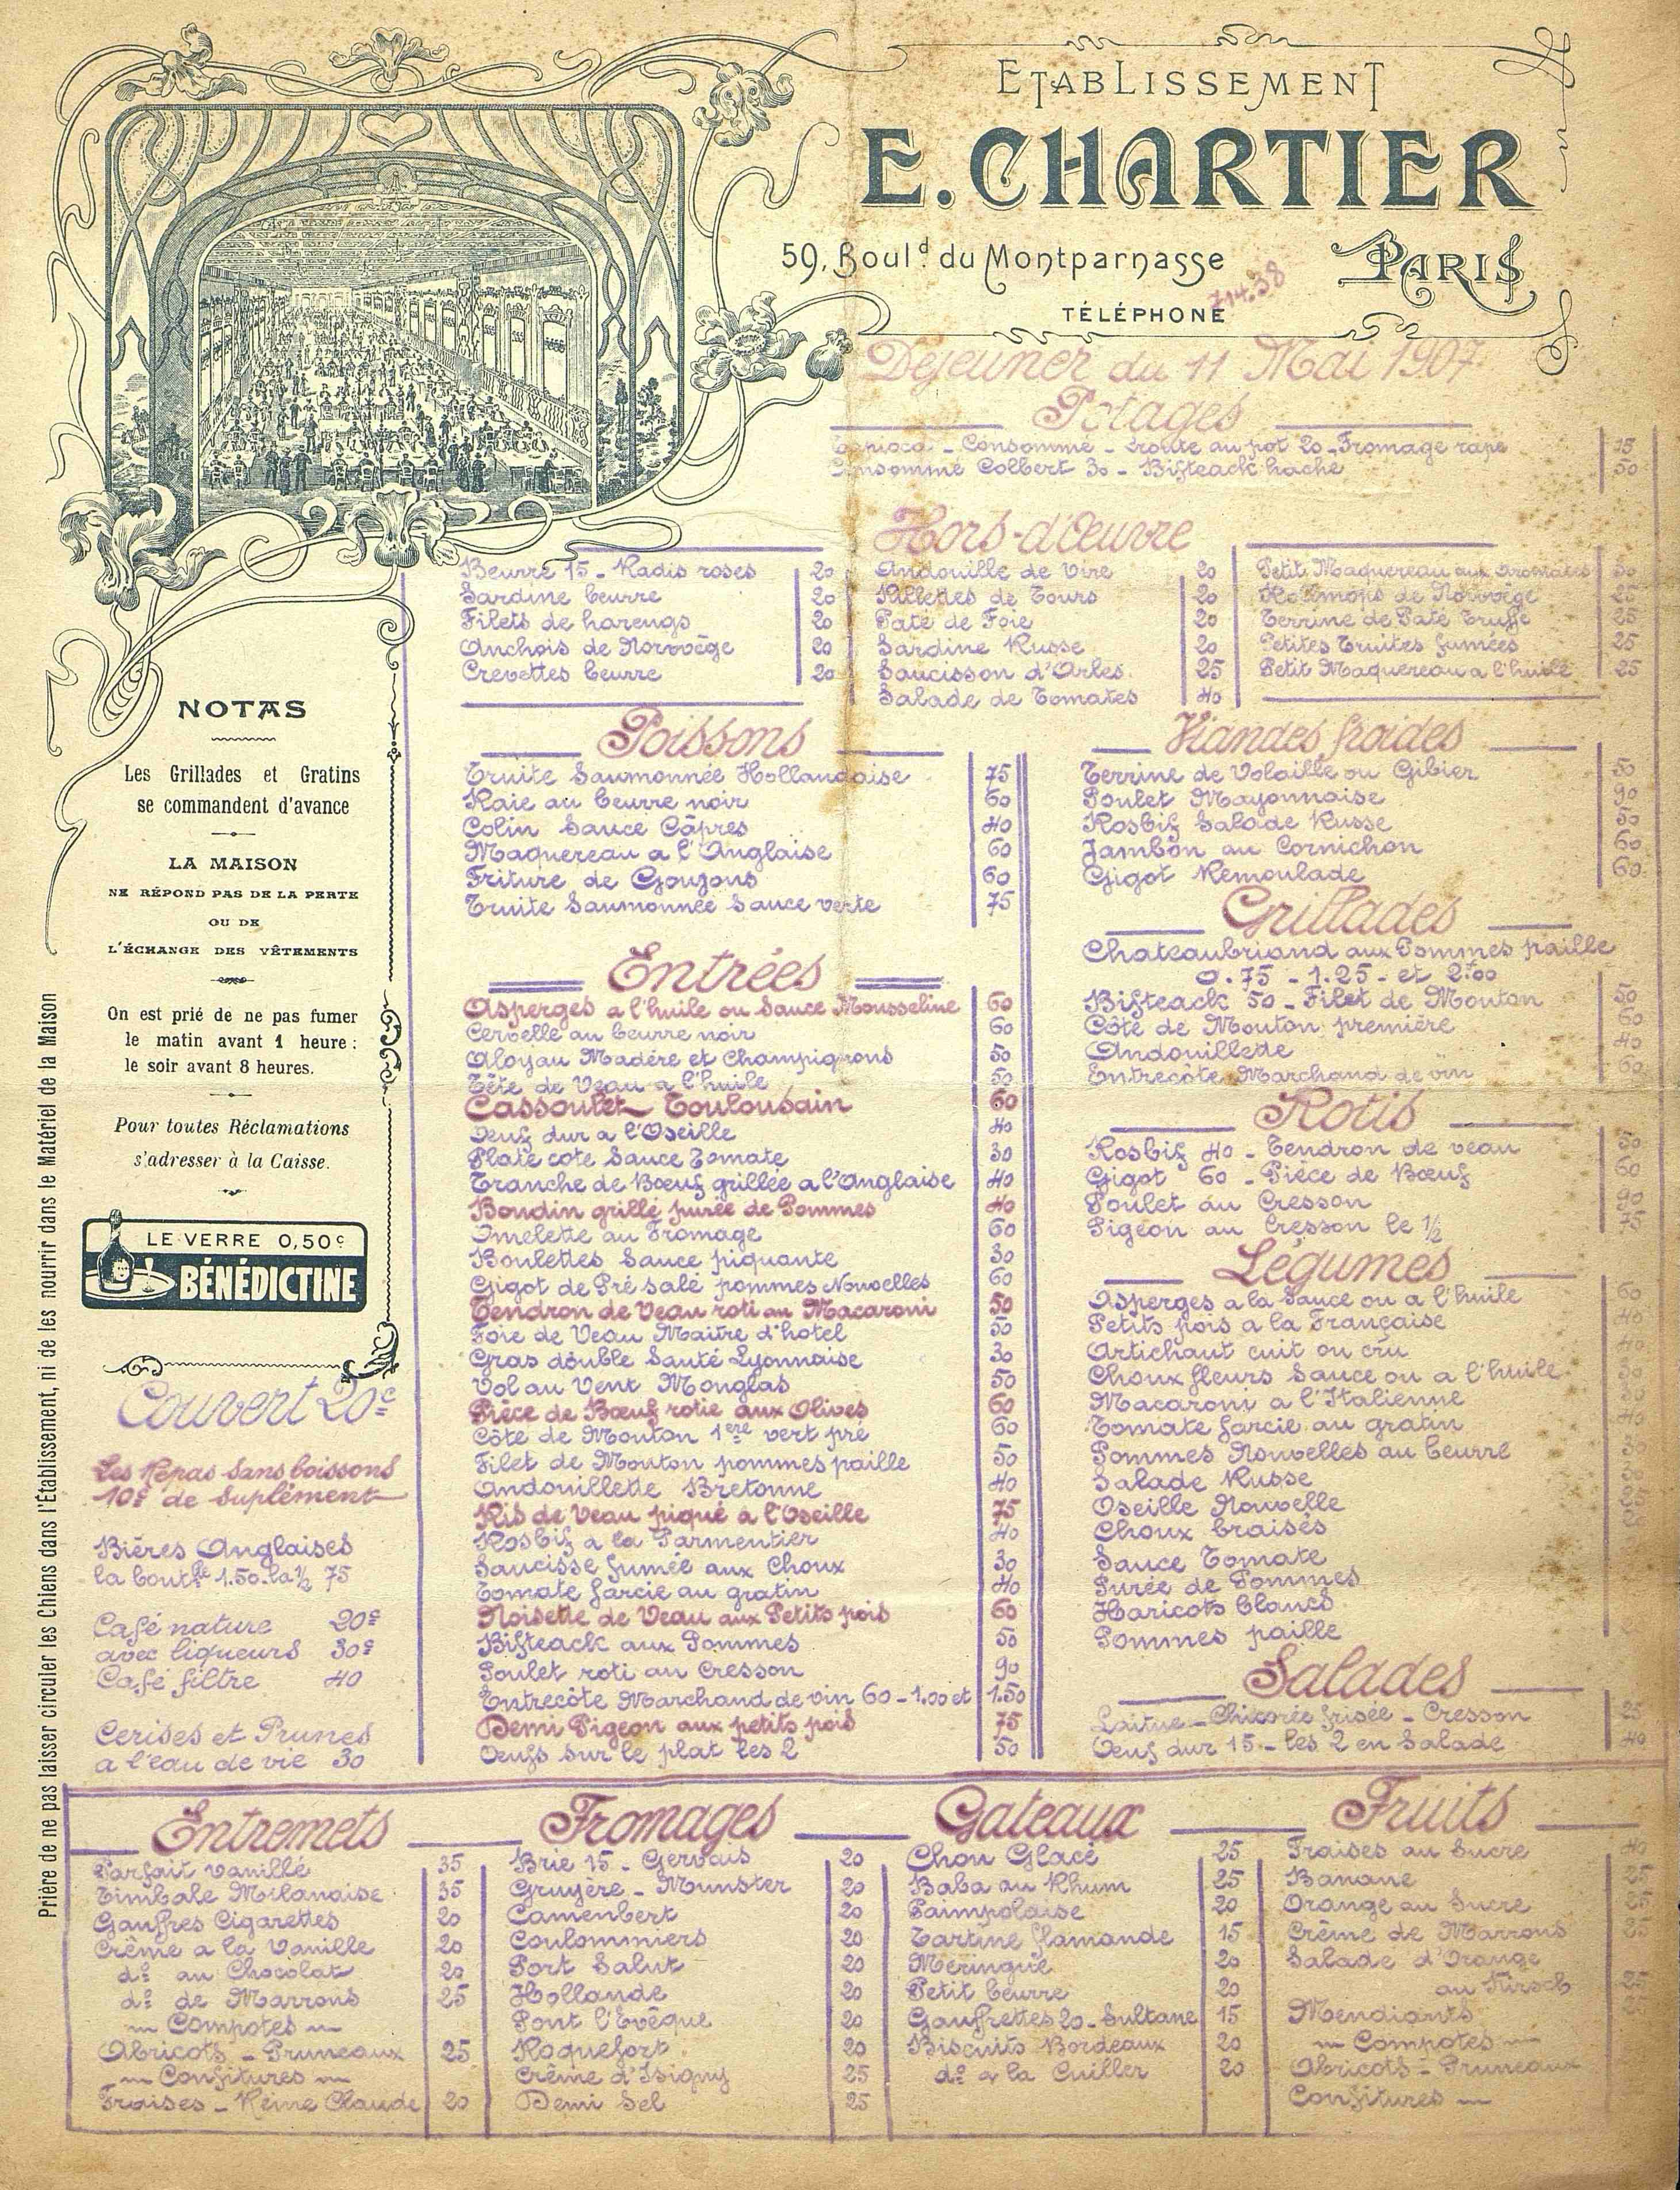 ETABLISSEMENT
E. CHARTIER
59, Boulᵈ du Montparnasse PARIS
TÉLÉPHONE 714.38
Déjeuner du 11 Mai 1907
Potages
Tapioca - Consommé - Croute au pot 20 - Fromage rapé 15
Consommé Colbert 30 - Bifteack haché 50
Hors-d'Œuvre
Beurre 15 - Radis roses 20
Sardine beurre 20
Filets de harengs 20
Anchois de Norvège 20
Crevettes beurre 20
Andouille de Vire 20
Rillettes de Tours 20
Paté de Foie 20
Sardine Russe 20
Saucisson d'Arles 25
Salade de Tomates 40
Petit Maquereau aux aromates 30
Rollmops de Norvège 25
Terrine de Paté Truffé 25
Petites Truites fumées 25
Petit Maquereau a l'huile 25
Poissons
Truite Saumonnée Hollandaise 75
Raie au beurre noir 60
Colin Sauce Câpres 40
Maquereau a l'Anglaise 60
Friture de Goujons 60
Truite Saumonnée Sauce verte 75
Entrées
Asperges a l'huile ou Sauce Mousseline 60
Cervelle au beurre noir 60
Aloyau Madère et Champignons 50
Tête de Veau a l'huile 50
Cassoulet Toulousain 60
Oeuf dur a l'Oseille 40
Plate cote Sauce Tomate 30
Tranche de Bœuf grillée a l'Anglaise 40
Boudin grillé purée de Pommes 40
Omelette au Fromage 60
Boulettes Sauce piquante 30
Gigot de Pré salé pommes Nouvelles 60
Tendron de Veau roti au Macaroni 50
Foie de Veau Maitre d'hotel 50
Gras double Sauté Lyonnaise 30
Vol au Vent Monglas 50
Pièce de Bœuf rotie aux Olives 60
Côte de Mouton 1ère vert pré 60
Filet de Mouton pommes paille 50
Andouillette Bretonne 40
Ris de Veau piqué a l'Oseille 75
Rosbif a la Parmentier 40
Saucisse fumée aux Choux 30
Tomate farcie au gratin 40
Noisette de Veau aux Petits pois 60
Bifteack aux Pommes 50
Poulet roti au Cresson 90
Entrecôte Marchand de vin 60 - 1.00 et 1.50
Demi Pigeon aux petits pois 75
Oeufs sur le plat les 2 50
Viandes froides
Terrine de Volaille ou Gibier 50
Poulet Mayonnaise 90
Rosbif Salade Russe 50
Jambon au Cornichon 60
Gigot Remoulade 60
Grillades
Chateaubriand aux Pommes paille
0.75 - 1.25 - et 2.00
Bifteack 50 - Filet de Mouton 50
Côte de Mouton première 60
Andouillette 40
Entrecôte Marchand de vin 60
Rotis
Rosbif 40 - Tendron de veau 50
Gigot 60 - Pièce de Bœuf 60
Poulet au Cresson 90
Pigeon au Cresson le ½ 75
Légumes
Asperges a la Sauce ou a l'huile 60
Petits pois a la Française 40
Artichaut cuit ou crû 40
Choux fleurs Sauce ou a l'huile
Macaroni a l'Italienne
Tomate farcie au gratin 40
Pommes Nouvelles au beurre
Salade Russe
Oseille Nouvelle
Choux braisés
Sauce Tomate
Purée de Pommes
Haricots blancs
Pommes paille
Salades
Laitue - Chicorée frisée - Cresson 25
Oeuf dur 15 - les 2 en Salade 40
NOTAS
Les Grillades et Gratins
se commandent d'avance
LA MAISON
NE RÉPOND PAS DE LA PERTE
OU DE
L'ÉCHANGE DES VÊTEMENTS
On est prié de ne pas fumer
le matin avant 1 heure:
le soir avant 8 heures.
Pour toutes Réclamations
s'adresser à la Caisse.
LE VERRE 0,50ᶜ
BÉNÉDICTINE
Couvert 20ᶜ
Les Repas Sans boissons
10ᶜ de Suplément
Bières Anglaises
la boutˡˡᵉ 1.50 - la ½ 75
Café nature 20ᶜ
avec liqueurs 30ᶜ
Café filtre 40
Cerises et Prunes
a l'eau de vie 30
Prière de ne pas laisser circuler les Chiens dans l'Établissement, ni de les nourrir dans le Matériel de la Maison
Entremets
Parfait Vanillé 35
Timbale Milanaise 35
Gaufres Cigarettes 20
Crême a la Vanille 20
dº au Chocolat 20
dº de Marrons 25
Compotes
Abricots - Pruneaux 25
Confitures
Fraises - Reine Claude 20
Fromages
Brie 15 - Gervais 20
Gruyère - Munster 20
Camenbert 20
Coulommiers 20
Port Salut 20
Hollande 20
Pont l'Evêque 20
Roquefort 20
Crême d'Isigny 25
Demi Sel 25
Gateaux
Chou Glacé 25
Baba au Rhum 25
Paimpolaise 20
Tartine flamande 15
Meringue 20
Petit beurre 20
Gaufrettes 20 - Sultane 15
Biscuits Bordeaux 20
dº a la Cuiller 20
Fruits
Fraises au Sucre 40
Banane 25
Orange au Sucre 25
Crême de Marrons 25
Salade d'Orange
au Kirsch 25
Mendiants 25
Compotes
Abricots - Pruneaux
Confitures